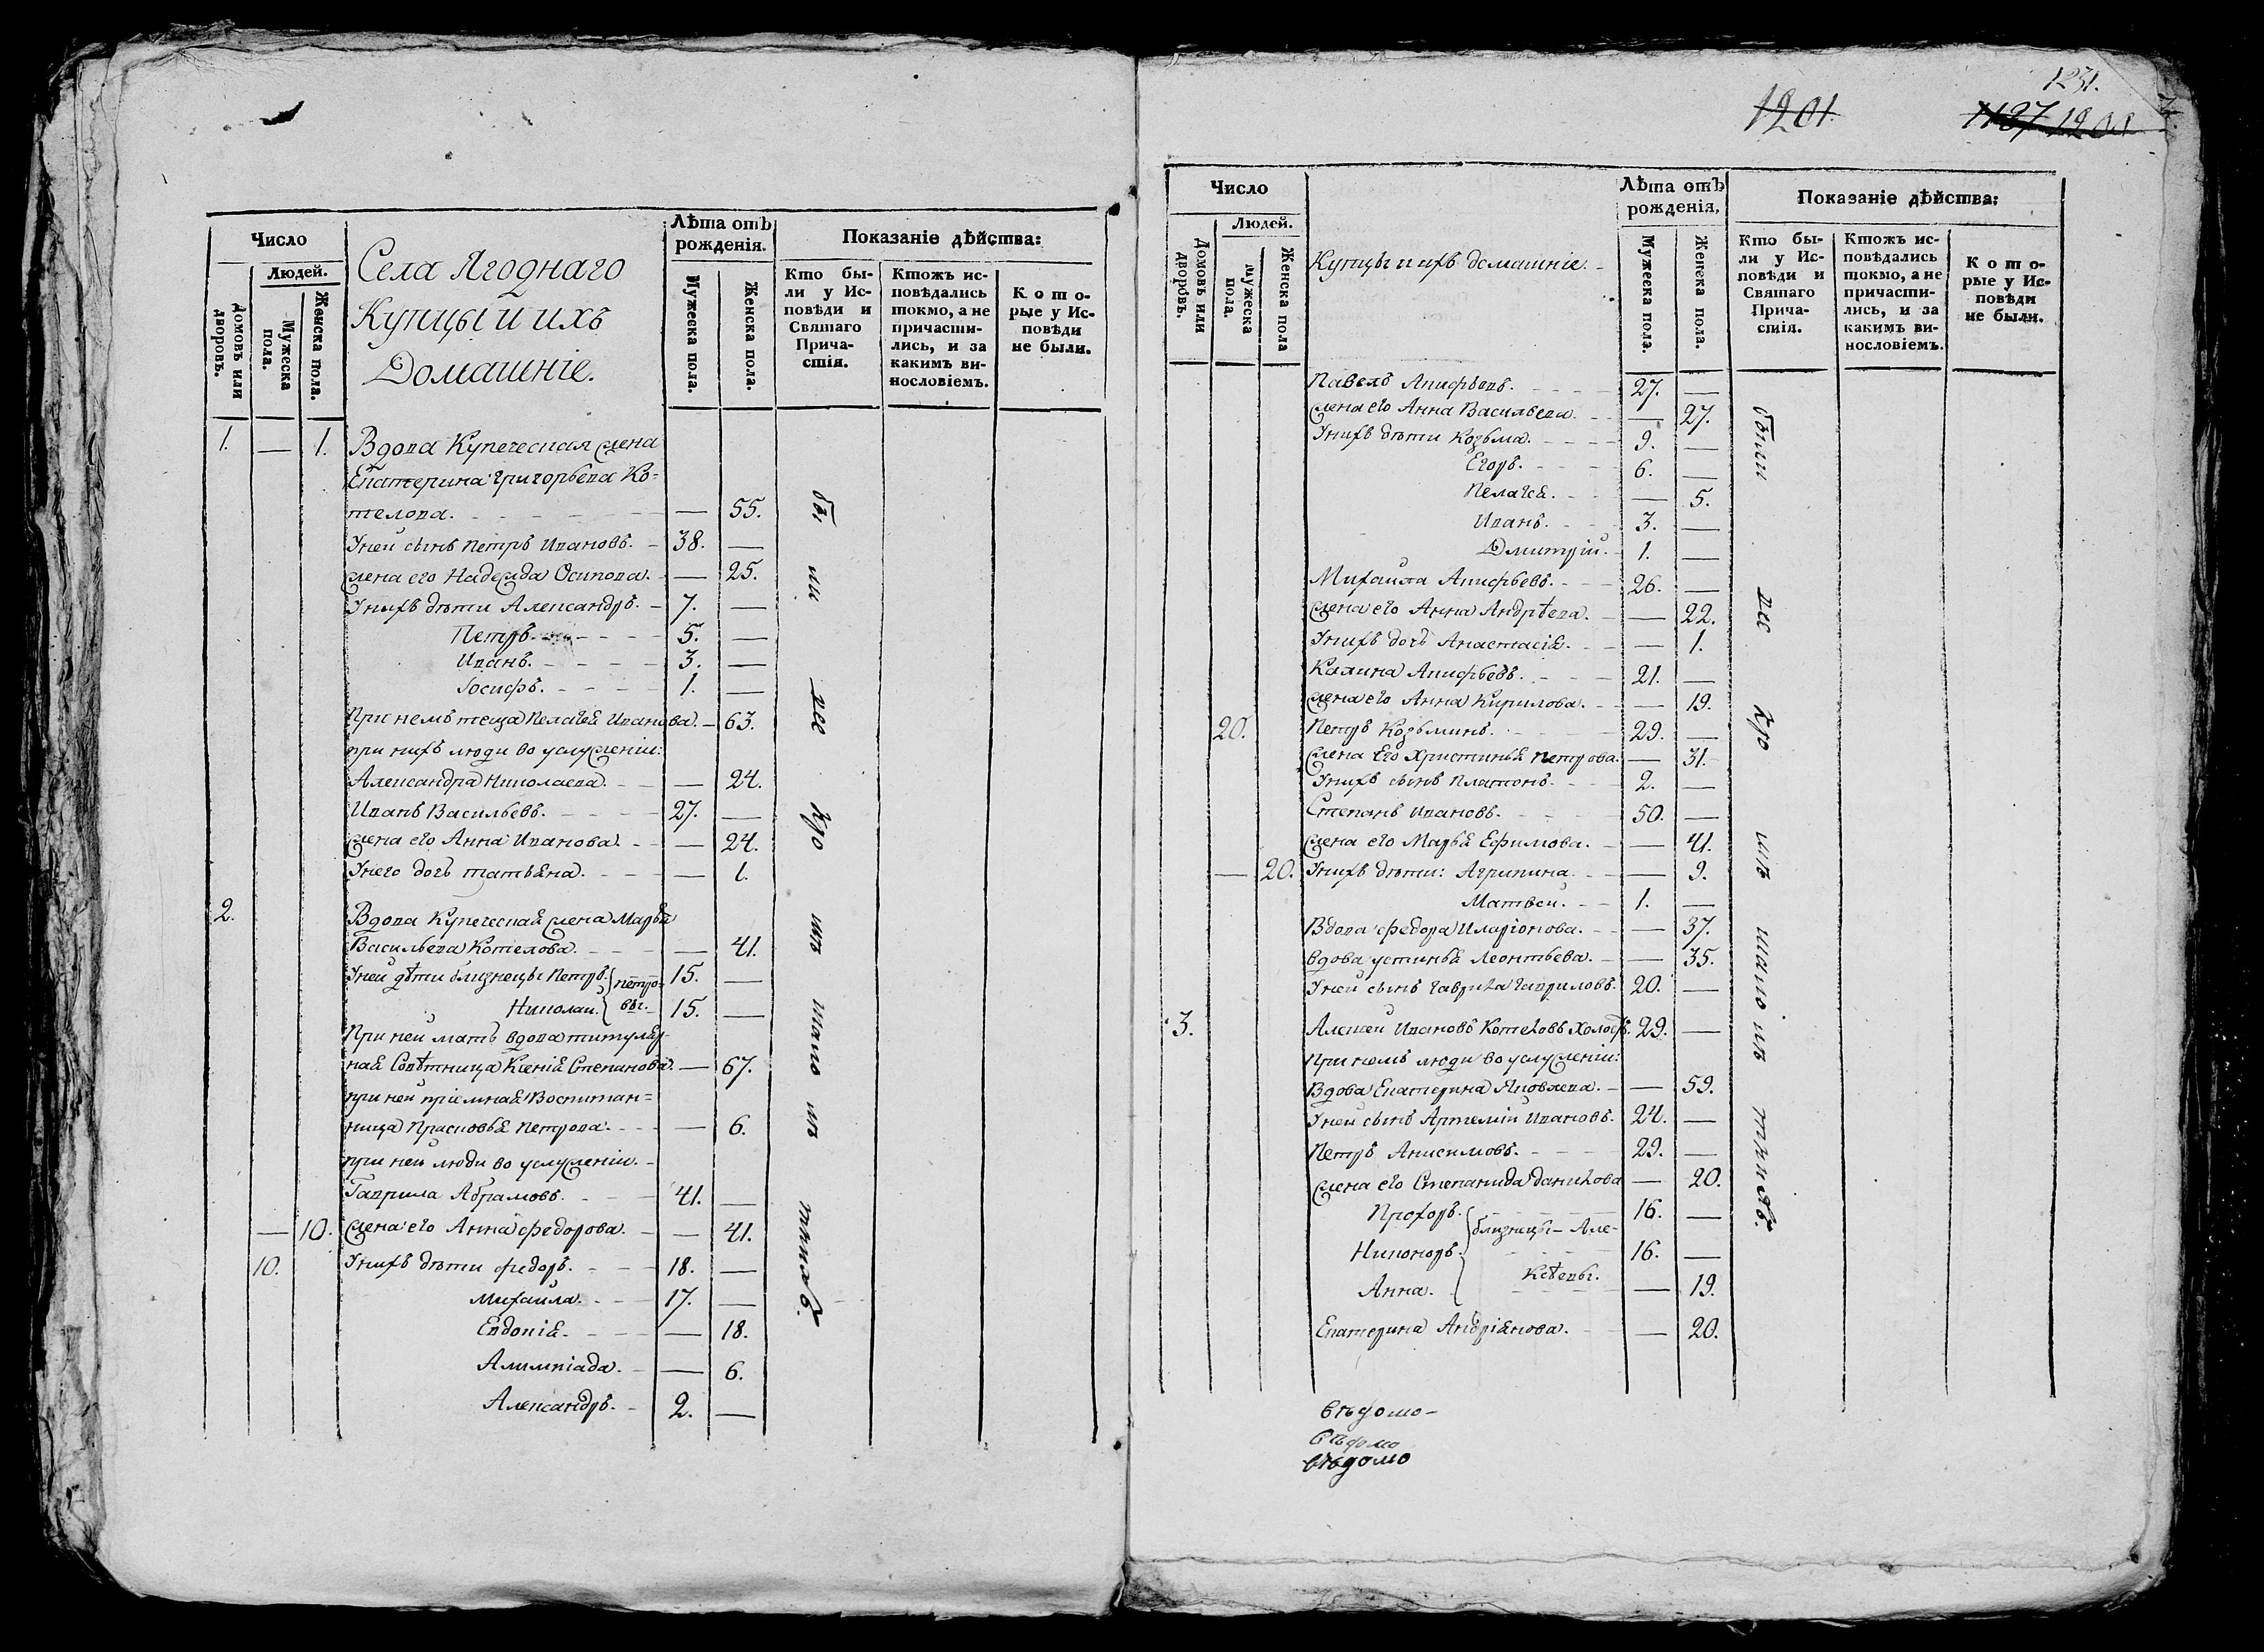 Число
Людей.
Домовъ или дворовъ.
Мужеска пола.
Женска пола.
Села Ягоднаго
Купцы и ихъ
Домашніе.
Лѣта отъ рожденія.
Мужеска пола.
Женска пола.
Показаніе дѣйства:
Кто бы-
ли у Ис-
повѣди и
Святаго
Прича-
стія.
Ктожъ ис-
повѣдались
токмо, а не
причасти-
лись, и за
какимъ ви-
нословіемъ.
Кото-
рые у Ис-
повѣди
не были.
1. — 1. Вдова Купеческая жена
Екатерина Григорьева Ко-
телова. — 55.
У ней сынъ Петръ Ивановъ. 38. —
жена его Надежда Осипова. — 25.
У нихъ дѣти Александръ. 7. —
Петръ. 5. —
Иванъ. 3. —
Іосифъ. 1. —
При немъ теща Пелагея Иванова. — 63.
при нихъ люди во услуженіи:
Александра Николаева. — 24.
Иванъ Васильевъ. 27. —
жена его Анна Иванова. — 24.
У него дочь Татьяна. — 1.
2. Вдова Купеческая жена Марья
Васильева Котелова. — 41.
У ней дѣти близнецы Петръ. 15. —
Николай. Петро-вы. 15. —
При ней мать вдова титуляр-
ная Совѣтница Ксенія Степанова. — 67.
при ней пріемная Воспитан-
ница Прасковья Петрова. — 6.
при ней люди во услуженіи.
Гаврила Абрамовъ. 41. —
— 10. жена его Анна Федорова. — 41.
10. У нихъ дѣти Федоръ. 18. —
Михаила. 17. —
Евдокія. — 18.
Алимпіада. — 6.
Александръ. 2. —
1231.
1201.
1187 1200
Число
Людей.
Домовъ или дворовъ.
Мужеска пола.
Женска пола
Купцы и ихъ домашніе.
Лѣта отъ рожденія,
Мужеска пола.
Женска пола.
Показаніе дѣйства:
Кто бы-
ли у Ис-
повѣди и
Святаго
Прича-
стія.
Ктожъ ис-
повѣдались
токмо, а не
причасти-
лись, и за
какимъ ви-
нословіемъ.
Кото-
рые у Ис-
повѣди
не были.
Павелъ 27. —
жена его Анна Васильева. — 27.
У нихъ дѣти Козьма. 9. —
Егоръ. 6. —
Пелагея. — 5.
Иванъ. 3. —
Дмитрій. 1. —
Михаила 26. —
жена его Анна Андрѣева. — 22.
У нихъ дочь Анастасія. — 1.
Калина 21. —
жена его Анна Кирилова. — 19.
20. Петръ Козьминъ. 29. —
жена его Христинья Петрова. — 31.
У нихъ сынъ Платонъ. 2. —
Степанъ Ивановъ. 50. —
жена его Марья Ефимова. — 41.
— 20. У нихъ дѣти: Агрипина. — 9.
Матвей. 1. —
Вдова Федора Иларіонова. — 37.
вдова Устинья Леонтьева. — 35.
У ней сынъ Гаврила Гавриловъ. 20. —
3. Алексей Ивановъ Котеловъ холостъ. 29. —
При немъ люди во услуженіи:
Вдова Екатерина Яковлева. — 59.
У ней сынъ Артемій Ивановъ. 24. —
Петръ Анисимовъ. 29. —
жена его Степанида Данилова — 20.
Прохоръ. близнецы Але- 16. —
Никоноръ. 16. —
Анна. ксѣевы. — 19.
Екатерина Андріянова. — 20.
вѣдомо
вѣдомо
вѣдомо